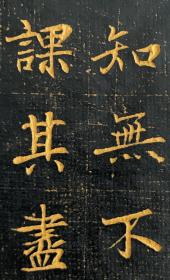 知無不
課其盡